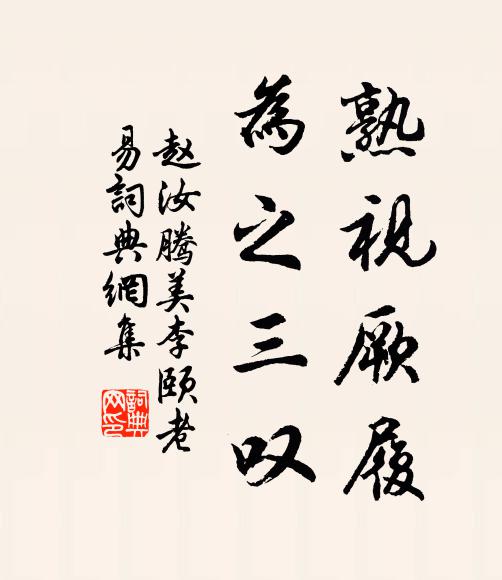 熟視厥履
為之三叹
赵汝腾美李頤老
易詞典網集
詞典
网印